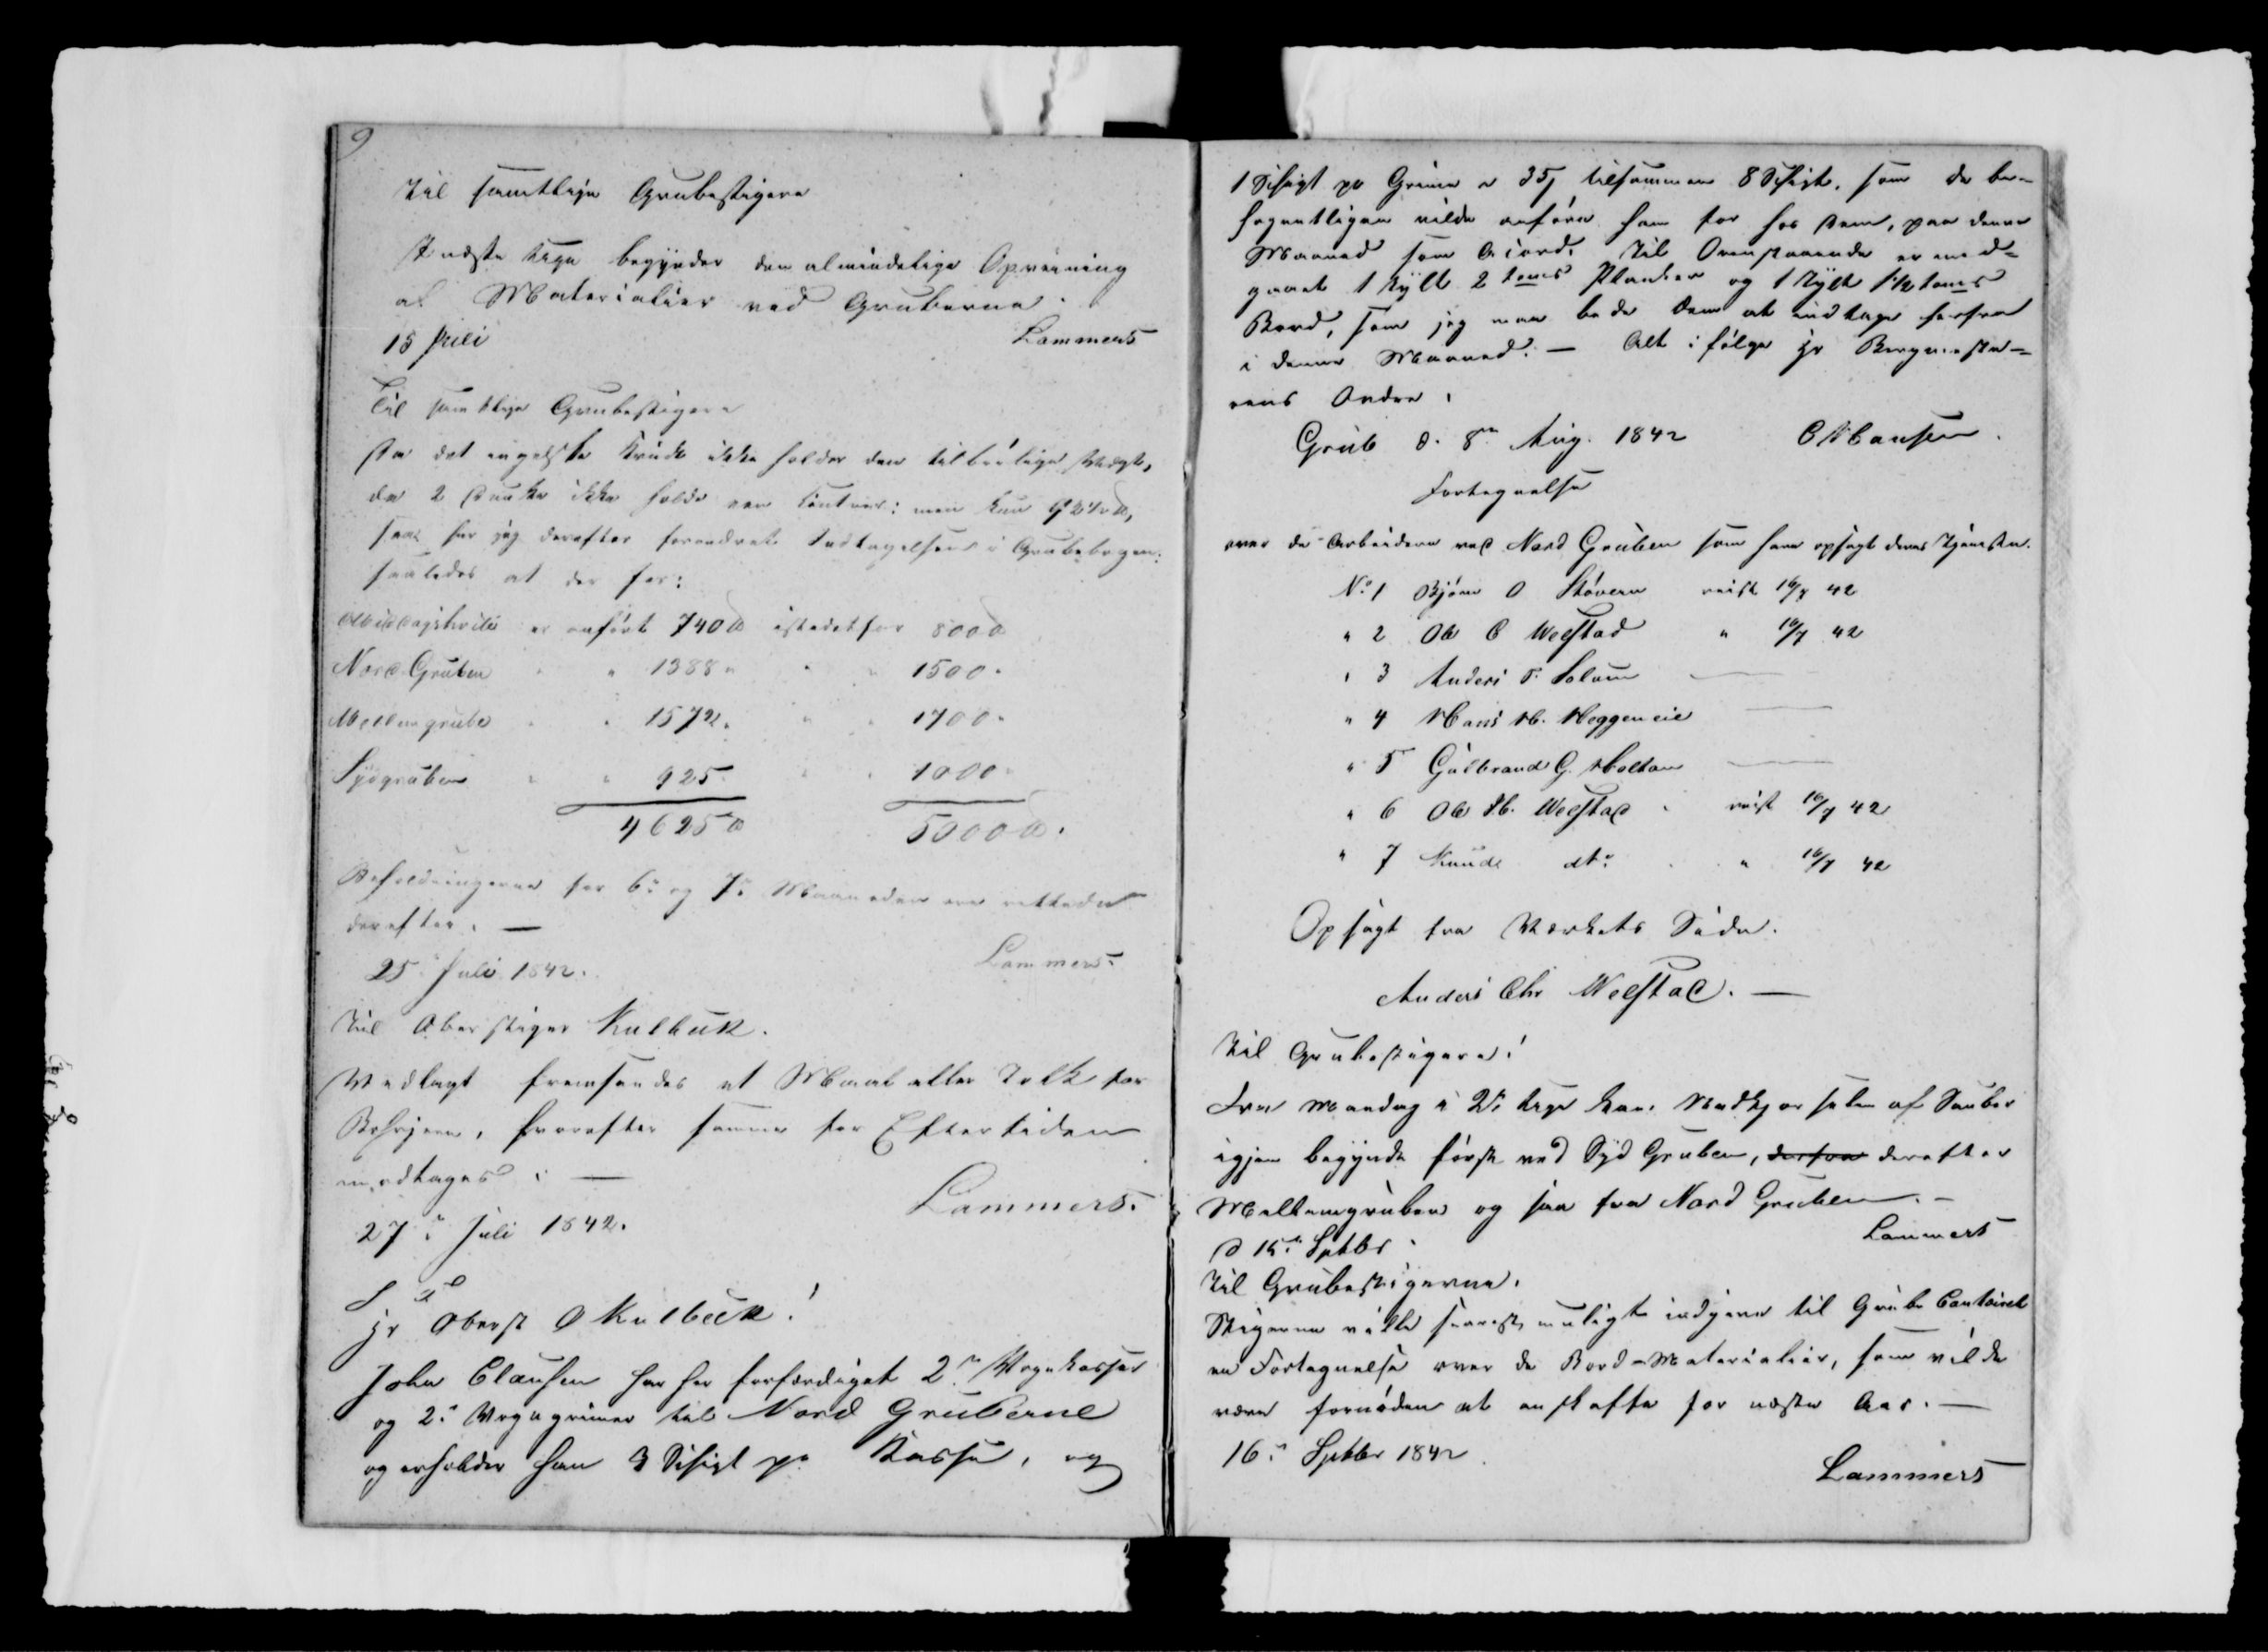 9
Til samtlige Grubestigere
I næste Uge begynder den almindelige Opveining
af Materialier ved Gruberne.
15 Juli Lammers
Til samtlige Grubestigere
Da det engelske Krudt ikke holder den tilbørlige Vægt,
da 2 ikke holde een Centner: men kun 92½ ℔,
saa har jeg derefter forandret Indtagelsen i Grubebogen:
saaledes at der for:
Middagshvile er anført 740 ℔ istedetfor 800 ℔
Nord Gruben " " 1388 " " " 1500 "
Mellemgrube " " 1572 " " " 1700 "
Sydgruben " " 925 " " 1000 "
4625 ℔ 5000 ℔.
Beholdningerne for 6te og 7de Maaneden ere rettede
derefter. —
25de Juli 1842. Lammers.
Til Oberstiger Kulbeck.
Vedlagt fremsendes et Maal eller Tolk for
Borhjern, hvorefter samme for Eftertiden
modtages. —
27de Juli 1842. Lammers.
S. T.
Hr Oberst O Kulbeck!
John Clausen har her forfærdiget 2de Vognkasser
og 2de Vogngrimer til Nord Gruberne
og erholder han 3 Schigt pr Kasse, og
1 Schigt pr Grime a 35 ß tilsammen 8 Schigt, som de be-
hagentligen vilde anføre ham for hos Dem, paa denne
Maaned som Acord. Til Ovenstaaende er med-
gaaet 1 Tylt 2 toms Planker og 1 Tylt 1½ toms
Bord, som jeg maa bede Dem at indtage herfra
i denne Maaned. — Alt ifølge Hr Bergmeste-
rens Ordre.
Grub d. 8de Aug. 1842 C Hansen.
Fortegnelse
over de Arbeidere ved Nord Gruben som have opsagt deres Tjeneste.
No. 1 Bjørn O Støvern reist 16/7 42
" 2 Ole C Weestad " 16/7 42
" 3 Anders T. Solum —
" 4 Hans H. Heggeneie —
" 5 Gulbrand G. Moltan —
" 6 Ole H. Weestad " reist 16/7 42
" 7 Knud dto. " 16/7 42
Opsagt fra Værkets Side.
Anders Chr Weestad. —
Til Grubestigere!
Fra Mandag i 2de Uge kan Nedkjørselen af Suber
igjen begynde først ved Syd Gruben, derfra derefter
Mellemgruben og saa fra Nord Gruben. —
d 15de Septbr. Lammers
Til Grubestigerne.
Stigerne ville snarest muligt indgive til Grube Contoiret
en Fortegnelse over de Bord-Materialier, som vilde
være fornøden at anskaffe for næste Aar. —
16de Septbr 1842
Lammers